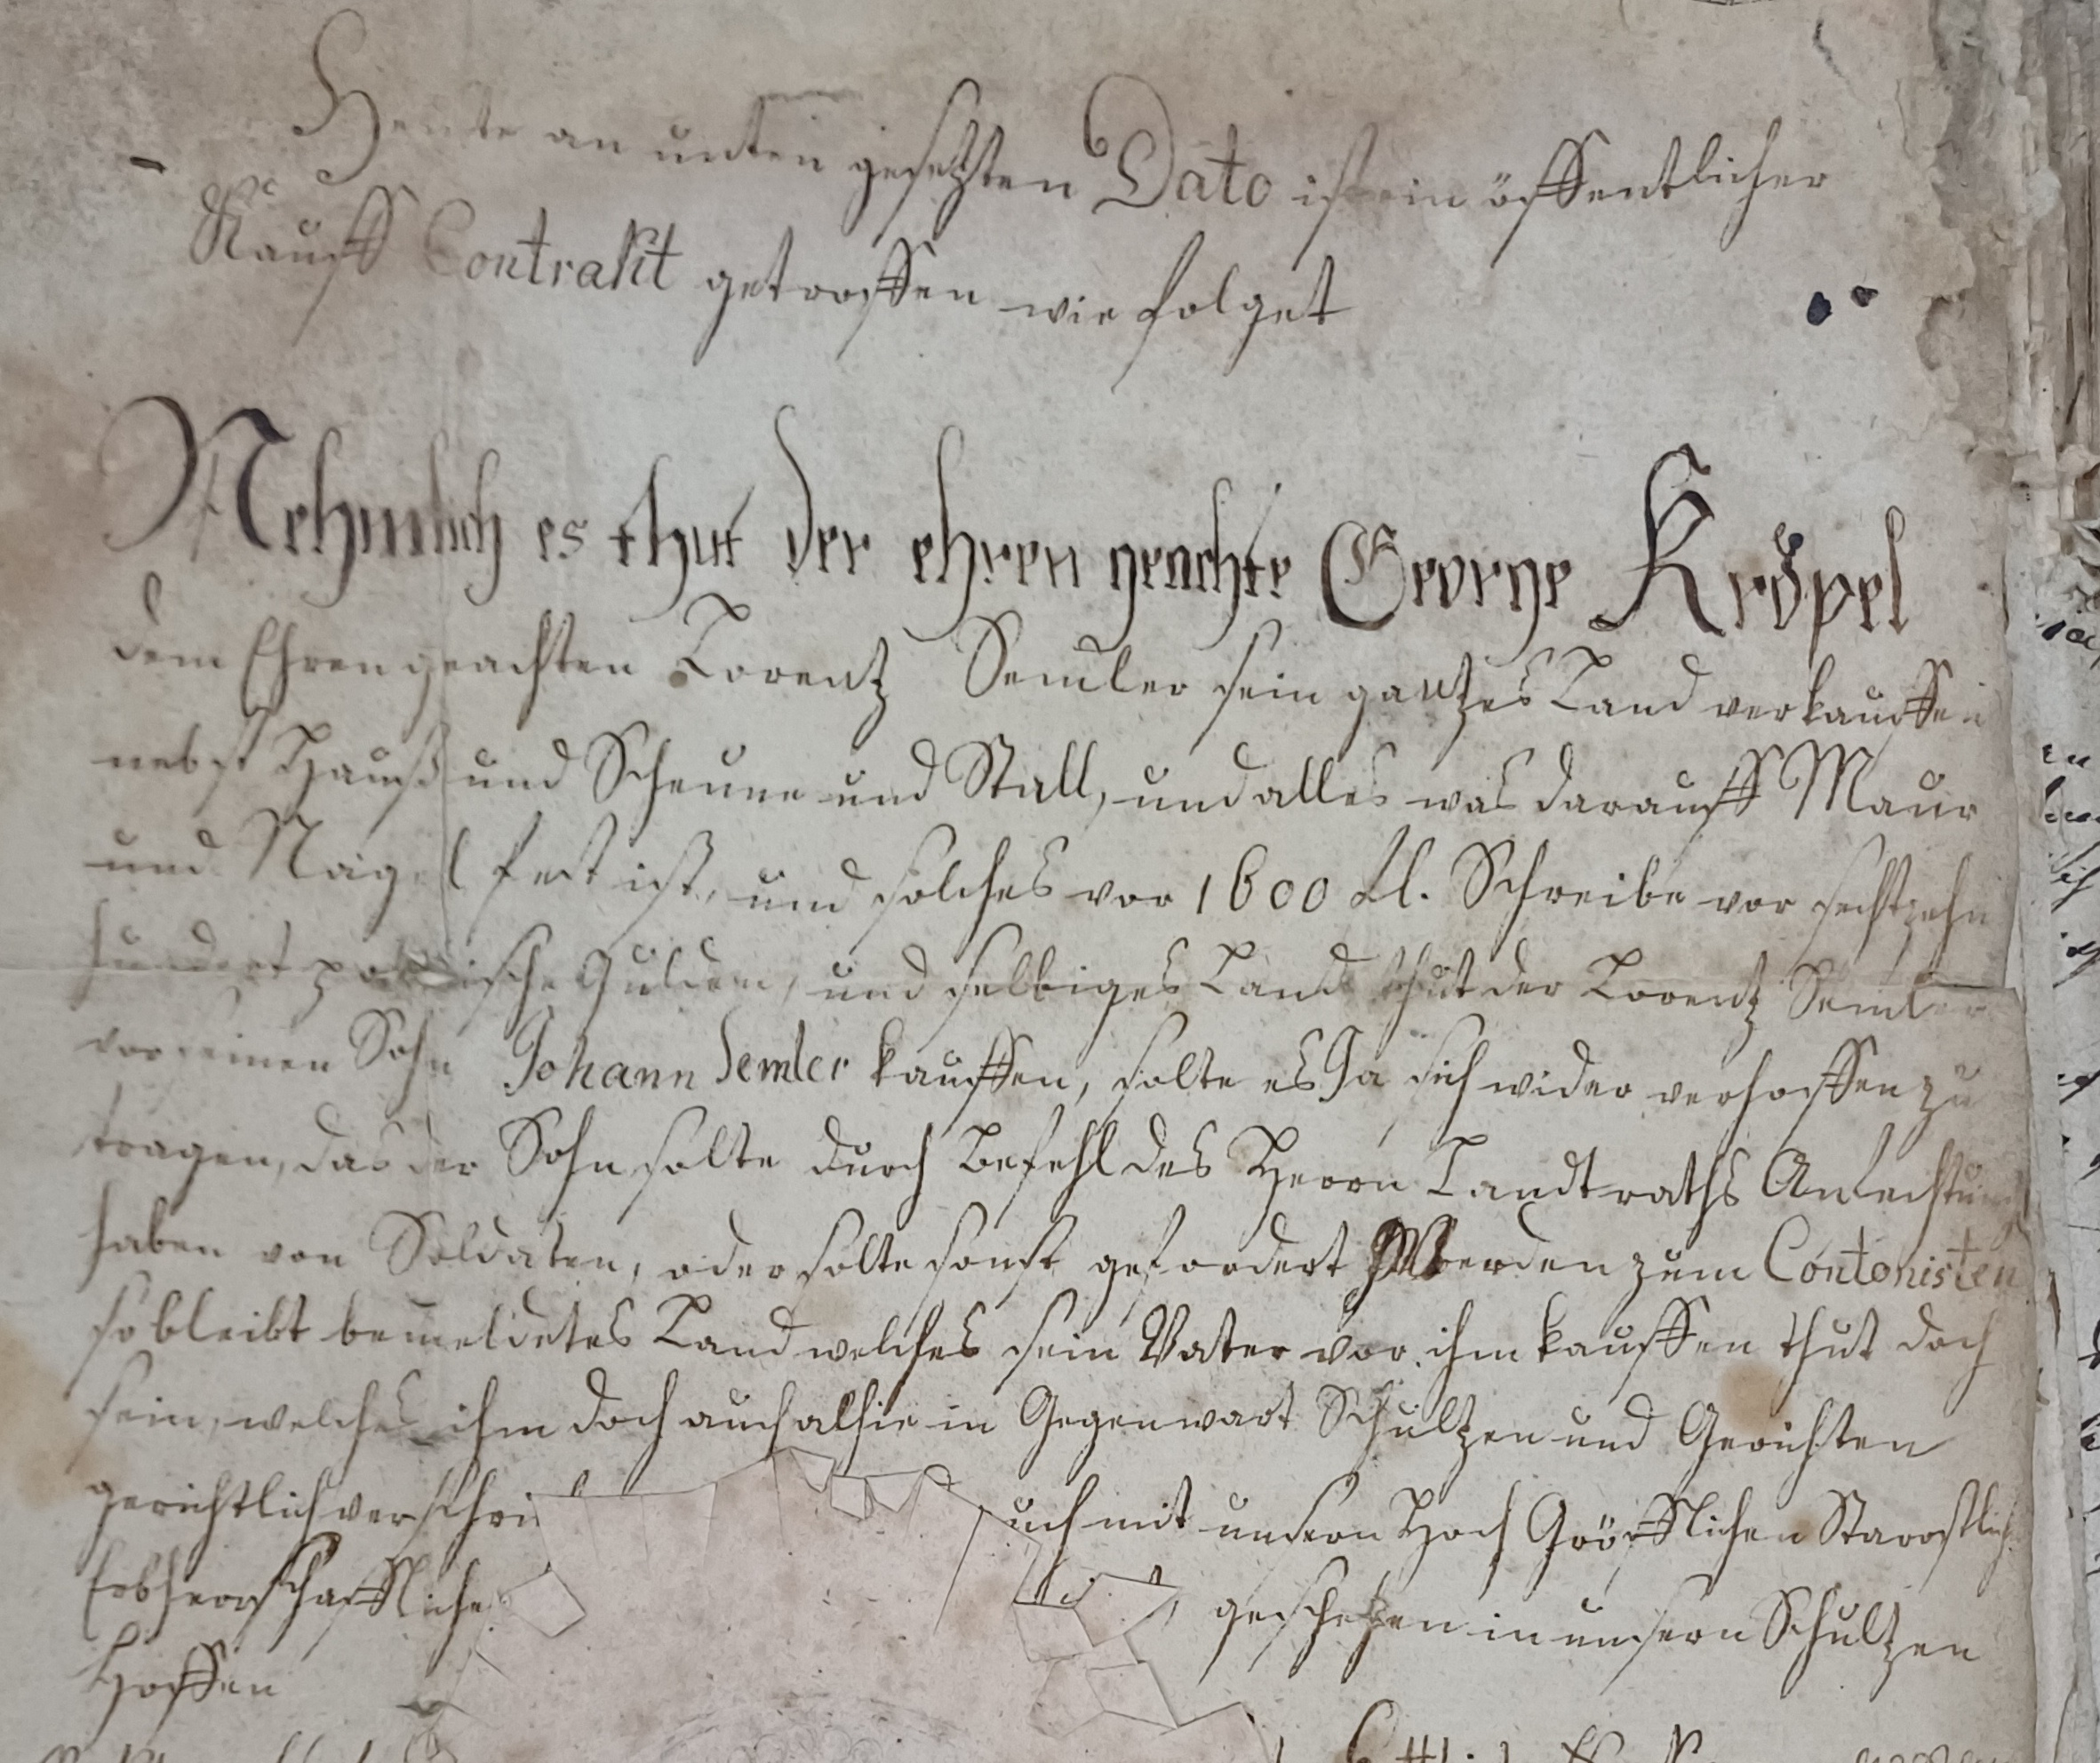 Heute an unten gesetzten Dato ist ein öffentlicher
Kauff Contrakt getroffen wie folget
Nehmlich es thut der ehren geachte George Kröpel
dem Ehren geachten Lorentz Semler sein gantzes Land verkauffen
nebst Hauß und Scheune und Stall, und alles was darauff Maur
und Nagel fest ist, und solches vor 1600 fl. Schreibe vor sechtzehn
hundert polnische Gulden, und selbiges Land thut der Lorentz Semler
vor seinen Sohn Johann Semler kauffen, solte es Ja sich wider verhoffen zu
tragen, das der Sohn solte durch Befehl des Herrn Landtraths Anfechtung
haben von Soldaten, oder solte sonst gefordert Werden zum Contonisten
so bleibt bemeldetes Land welches sein Vater vor ihm kauffen thut doch
sein, welches ihm doch auch alhie in Gegenwart Schultzen und Gerichten
gerichtlich verschri uch mit unsern Hoch Gröfflichen Starostlich
Erbherrschafftliche geschehen in unsern Schultzen
Hoffen